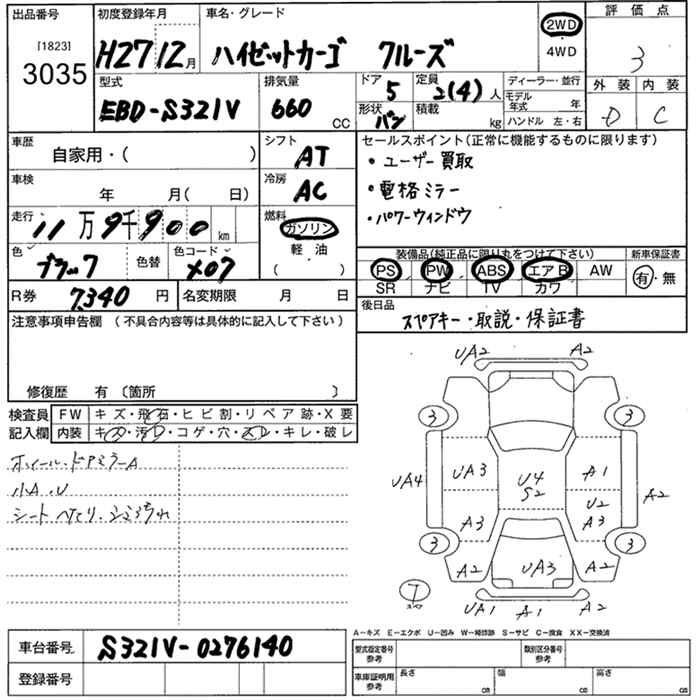 出品番号
[1823]
3035
初度登録年月
H27 12月
車名・グレード
ハイゼットカーゴ クルーズ
2WD
・
4WD
評価点
3
型式
EBD-S321V
排気量
660
CC
ドア
5
定員
2(4)人
形状
バン
積載
kg
ディーラー・並行
モデル年式 年
ハンドル 左・右
外装 内装
D C
車歴
自家用・( )
シフト
AT
車検
年 月( 日)
冷房
AC
走行
11万9千900km
燃料
ガソリン
・
軽油
( )
色
ブラック
色替
色コード
X07
R券 7,340 円
名変期限 月 日
セールスポイント(正常に機能するものに限ります)
・ユーザー買取
・電格ミラー
・パワーウィンドウ
装備品(純正品に限り丸をつけて下さい)
新車保証書
PS PW ABS エアB AW
SR ナビ TV カワ
有・無
後日品
スペアキー・取説・保証書
注意事項申告欄(不具合内容等は具体的に記入して下さい)
修復歴 有〔箇所 〕
検査員
記入欄
FW キズ・飛石・ヒビ割・リペア跡・X要
内装 キズ・汚レ・コゲ・穴・スレ・キレ・破レ
ホイール・ドアミラーA
小A.U
シート
UA2 A2
3 3
UA4 UA3 U4 A1 A2
S2 U2
A3 A3
3 3
A2 UA3 A2
T
スペア
UA1 A1 A2
A−キズ E−エクボ U−凹み W−補修跡 S−サビ C−腐食 XX−交換済
車台番号 S321V-0276140
登録番号
型式指定番号
参考
類別区分番号
参考
車庫証明用
参考
長さ cm
幅 cm
高さ cm